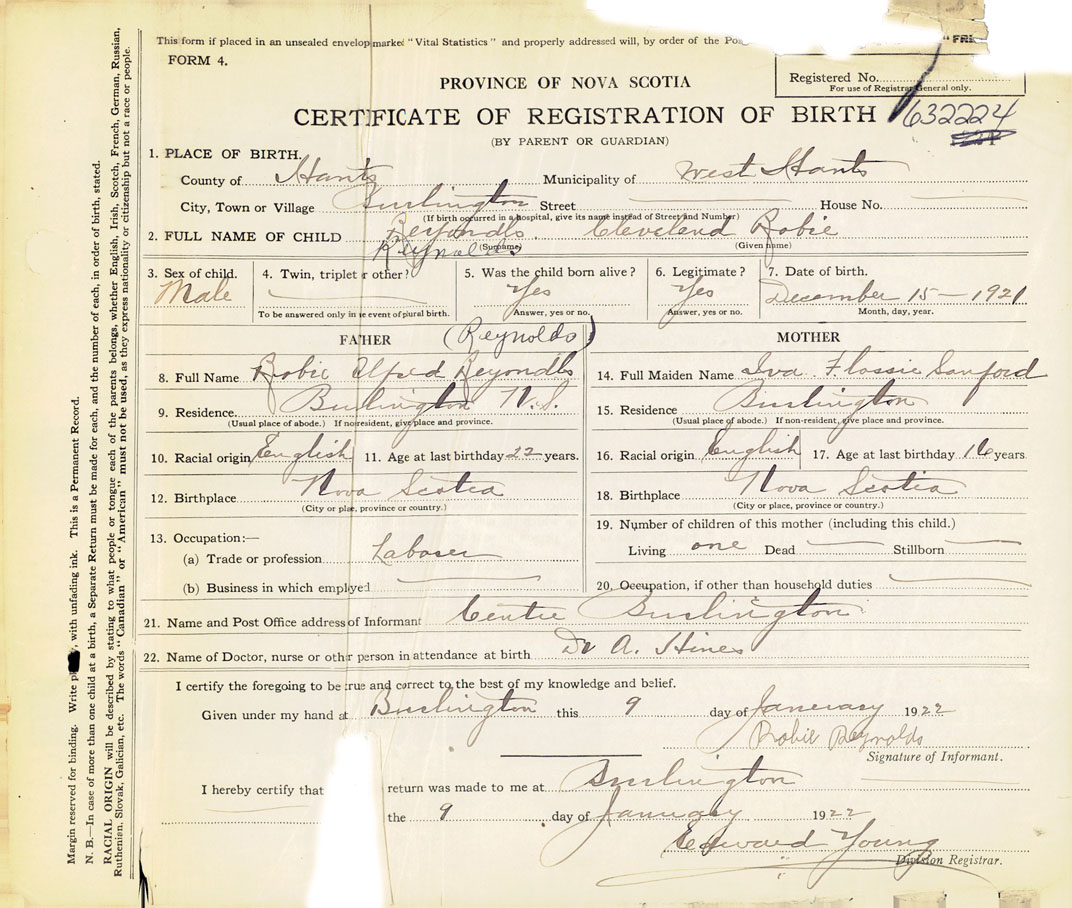 This form if placed in an unsealed envelop marked "Vital Statistics" and properly addressed will, by order of the Pos
" FRE
FORM 4.
Registered No.
For use of Registrar General only.
PROVINCE OF NOVA SCOTIA
CERTIFICATE OF REGISTRATION OF BIRTH
632224
(BY PARENT OR GUARDIAN)
1. PLACE OF BIRTH.
County of Hants Municipality of West Hants
City, Town or Village Burlington Street House No.
(If birth occurred in a hospital, give its name instead of Street and Number)
2. FULL NAME OF CHILD Reyondls. Cleveland Robie
Reynolds (Surname) (Given name)
3. Sex of child. 4. Twin, triplet or other? 5. Was the child born alive? 6. Legitimate? 7. Date of birth.
Male Yes Yes December 15 — 1921
To be answered only in event of plural birth. Answer, yes or no. Answer, yes or no. Month, day, year.
FATHER (Reynolds)
8. Full Name Robie Alfred Reyondls
9. Residence. Burlington N.S.
(Usual place of abode.) If no resident, give place and province.
10. Racial origin English 11. Age at last birthday 22 years.
12. Birthplace Nova Scotia
(City or place, province or country.)
13. Occupation:—
(a) Trade or profession Laborer
(b) Business in which employed
MOTHER
14. Full Maiden Name Iva Flossie Sanford
15. Residence Burlington
(Usual place of abode.) If non-resident, give place and province.
16. Racial origin English 17. Age at last birthday 16 years
18. Birthplace Nova Scotia
(City or place, province or country.)
19. Number of children of this mother (including this child.)
Living one Dead Stillborn
20. Occupation, if other than household duties
21. Name and Post Office address of Informant Centre Burlington
22. Name of Doctor, nurse or other person in attendance at birth Dr A. Hines
I certify the foregoing to be true and correct to the best of my knowledge and belief.
Given under my hand at Burlington this 9 day of Januarary 1922
Robie Reynolds
Signature of Informant.
I hereby certify that return was made to me at Burlington
the 9 day of January 1922
Edward Young
Division Registrar.
Margin reserved for binding. Write with unfading ink. This is a Permanent Record.
N. B.—In case of more than one child at a birth, a Separate Return must be made for each, and the number of each, in order of birth, stated.
RACIAL ORIGIN will be described by stating to what people or tongue each of the parents belongs, whether English, Irish, Scotch, French, German, Russian,
Ruthenian, Slovak, Galician, etc. The words "Canadian" or "American" must not be used, as they express nationality or citizenship but not a race or people.